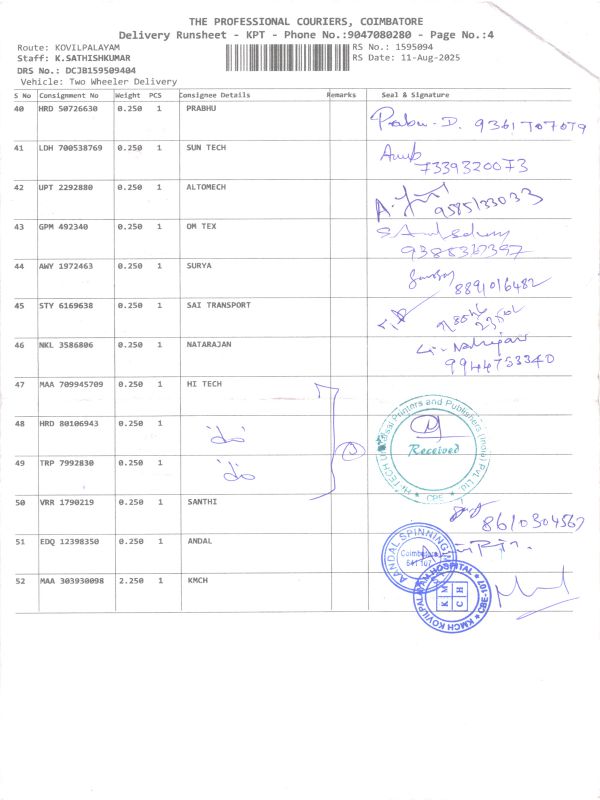 THE PROFESSIONAL COURIERS, COIMBATORE
Delivery Runsheet - KPT - Phone No.:9047080280 - Page No.:4
Route: KOVILPALAYAM RS No.: 1595094
Staff: K.SATHISHKUMAR RS Date: 11-Aug-2025
DRS No.: DCJB159509404
Vehicle: Two Wheeler Delivery
S No Consignment No Weight PCS Consignee Details Remarks Seal & Signature
40 HRD 50726630 0.250 1 PRABHU
Prabu-D. 9361707079
41 LDH 700538769 0.250 1 SUN TECH
7339320073
42 UPT 2292880 0.250 1 ALTOMECH
9585133033
43 GPM 492340 0.250 1 OM TEX
44 AWY 1972463 0.250 1 SURYA
8891016482
45 STY 6169638 0.250 1 SAI TRANSPORT
46 NKL 3586806 0.250 1 NATARAJAN
9944753340
47 MAA 709945709 0.250 1 HI TECH
48 HRD 80106943 0.250 1 do
49 TRP 7992830 0.250 1 do
Received
CBE
50 VRR 1790219 0.250 1 SANTHI
8610304567
51 EDQ 12398350 0.250 1 ANDAL
AANDAL SPINNING
Coimbatore
641 107
52 MAA 303930098 2.250 1 KMCH
KMCH KOVILPALAYAM HOSPITAL
K M
C H